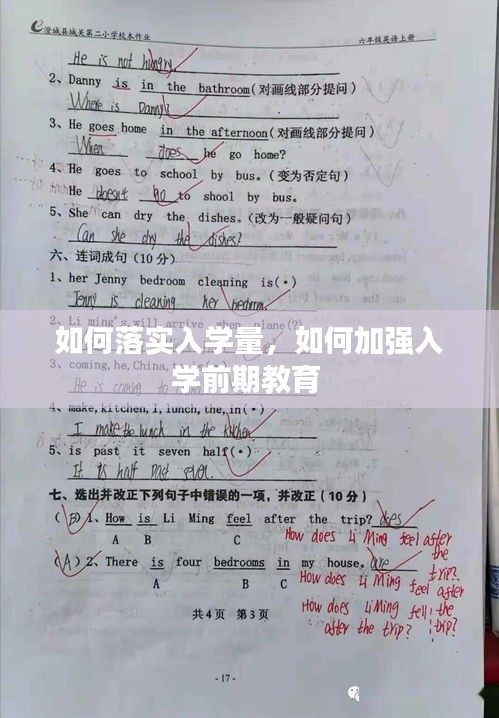 澄城县城关第二小学校本作业 六年级英语上册
He is not hungry.
2、Danny is in the bathroom(对画线部分提问)
Where is Danny?
3、He goes home in the afternoon(对画线部分提问)
When does he go home?
4、He goes to school by bus.(变为否定句)
He doesn't go to shool by bus.
5、She can dry the dishes.(改为一般疑问句)
Can she dry the dishes?
六、连词成句(10分)
1、her Jenny bedroom cleaning is(·)
Jenny is cleaning her bedroom.
2、Li ming's will arrive when plane(?)
如何落实入学量，如何加强入
3、coming, he, China,
学前期教育
4、make, kitchen, I, lunch, the, in(·)
I make the lunch in the kitchen
5、is past it seven half(·)
It is half past seven.
七、选出并改正下列句子中错误的一项，并改正(10分)
(B)1、How is Li Ming feel after the trip? does
A B C
How does Li Ming feel after the trip?
(A)2、There is four bedrooms in my house. are
A B C
How does Li Ming feel after the trip?
How does Li Ming fell after the trip?
共4页 第3页
-17-